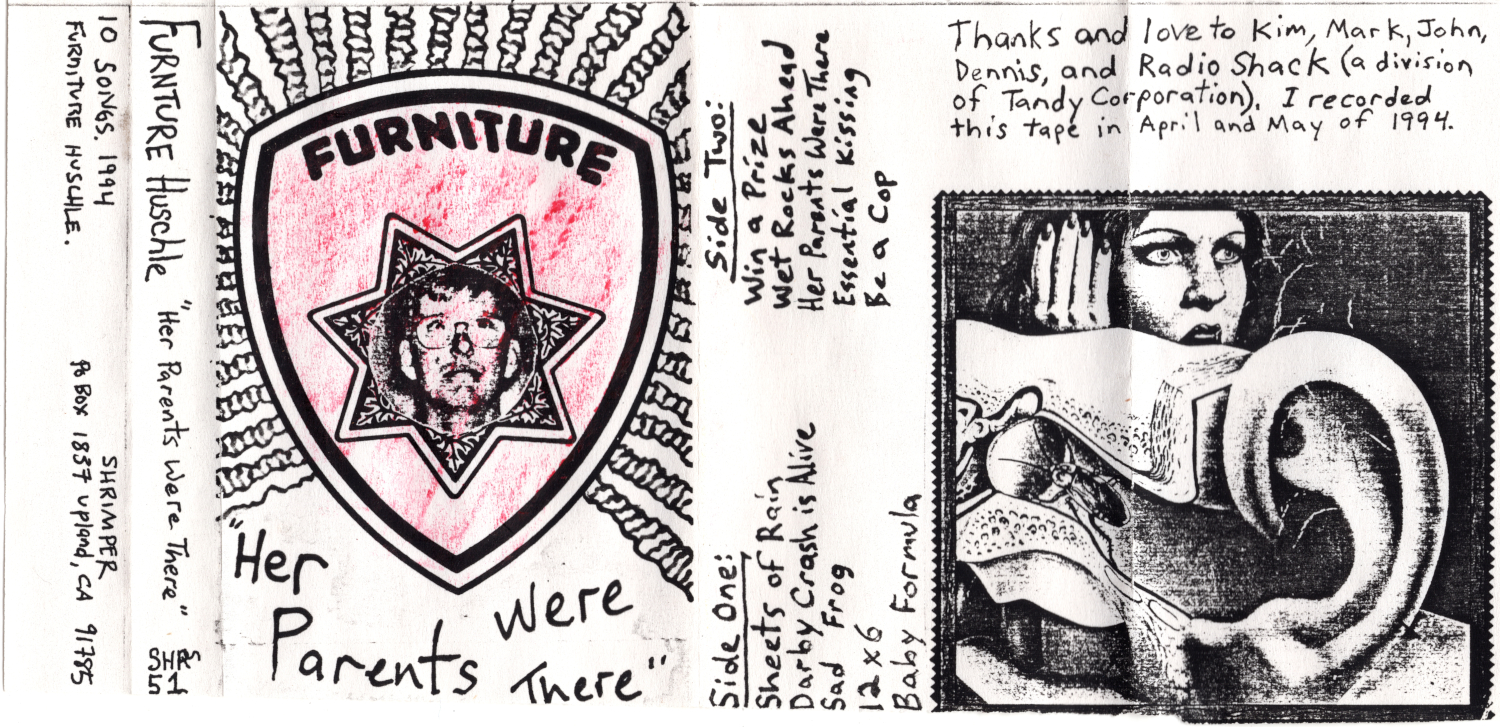 10 SONGS. 1994
FURNITURE HUSCHLE.
SHRIMPER
PO BOX 1837 upland, CA 91785
FURNITURE Huschle "Her Parents Were There"
FURNITURE
"Her
Parents
Were
There"
Side One:
Sheets of Rain
Darby Crash is Alive
Sad Frog
12 x 6
Baby Formula
Side Two:
Win a Prize
Wet Rocks Ahead
Her Parents Were There
Essential Kissing
Be a Cop
Thanks and love to Kim, Mark, John,
Dennis, and Radio Shack (a division
of Tandy Corporation). I recorded
this tape in April and May of 1994.